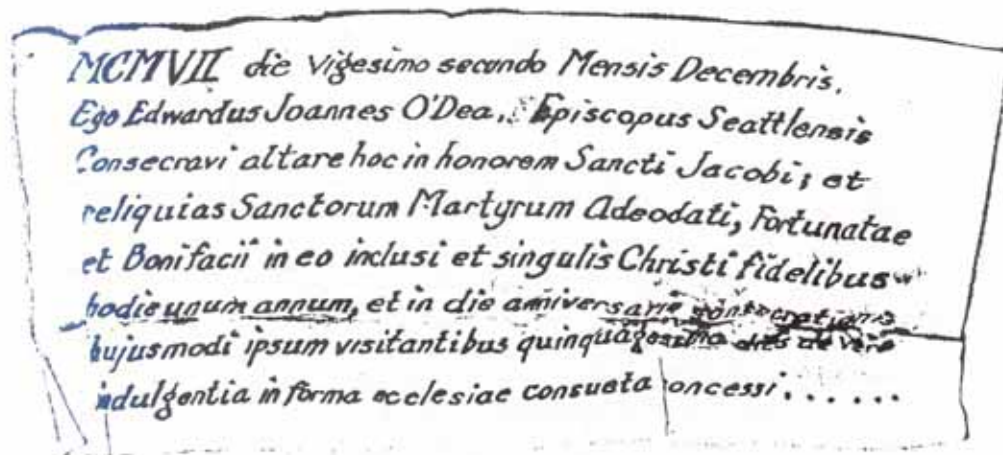 MCMVII die vigesimo secundo Mensis Decembris.
Ego Edwardus Joannes O'Dea, Episcopus Seattlensis
Consecravi altare hoc in honorem Sancti Jacobi; et
reliquias Sanctorum Martyrum Adeodati, Fortunatae
et Bonifacii in eo inclusi et singulis Christi fidelibus
hodie unum annum, et in die anniversario consecrationis
hujusmodi ipsum visitantibus quinquagesima dies de vera
indulgentia in forma ecclesiae consueta concessi......